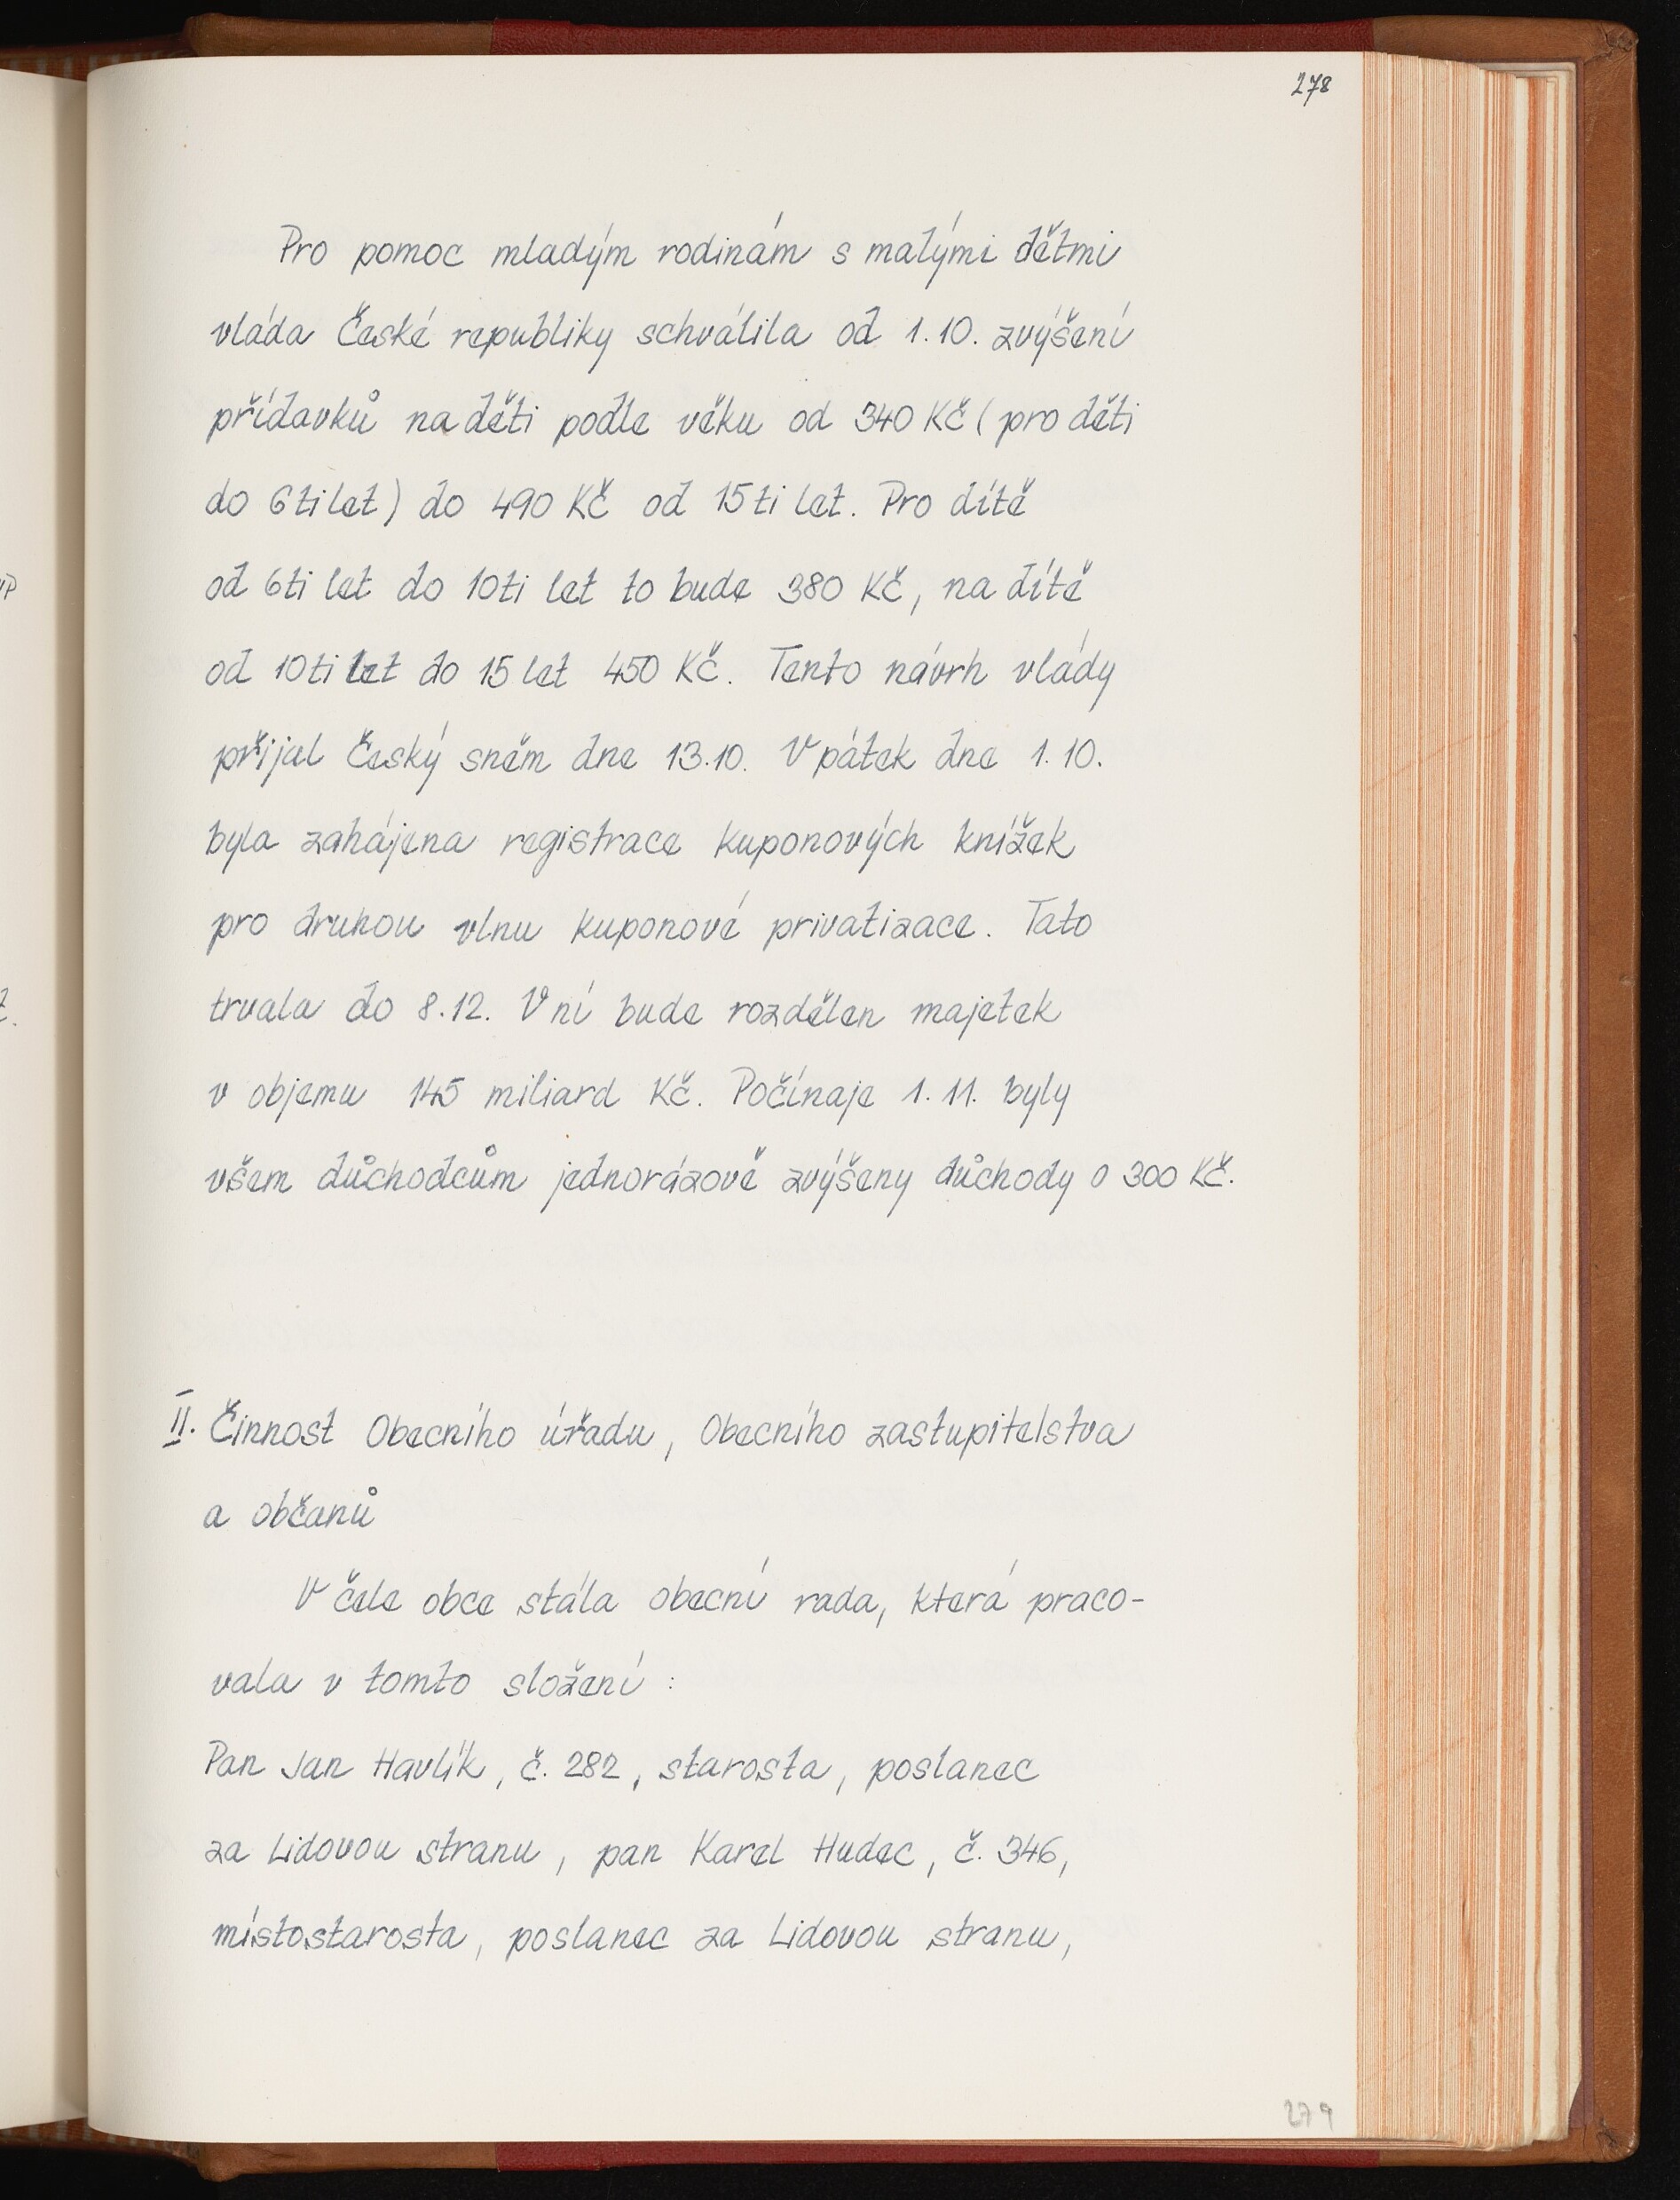 278
Pro pomoc mladým rodinám s malými dětmi
vláda České republiky schválila od 1.10. zvýšení
přídavků na děti podle věku od 340 Kč (pro děti
do 6ti let) do 490 Kč od 15ti let. Pro dítě
od 6ti let do 10ti let to bude 380 Kč, na dítě
od 10ti let do 15 let 450 Kč. Tento návrh vlády
přijal Český sněm dne 13.10. V pátek dne 1.10.
byla zahájena registrace kuponových knížek
pro druhou vlnu kuponové privatizace. Tato
trvala do 8.12. V ní bude rozdělen majetek
v objemu 145 miliard Kč. Počínaje 1.11. byly
všem důchodcům jednorázově zvýšeny důchody o 300 Kč.
II. Činnost Obecního úřadu, Obecního zastupitelstva
a občanů
V čele obce stála obecní rada, která praco-
vala v tomto složení :
Pan Jan Havlík, č. 282, starosta, poslanec
za Lidovou stranu, pan Karel Hudec, č. 346,
místostarosta, poslanec za Lidovou stranu,
279